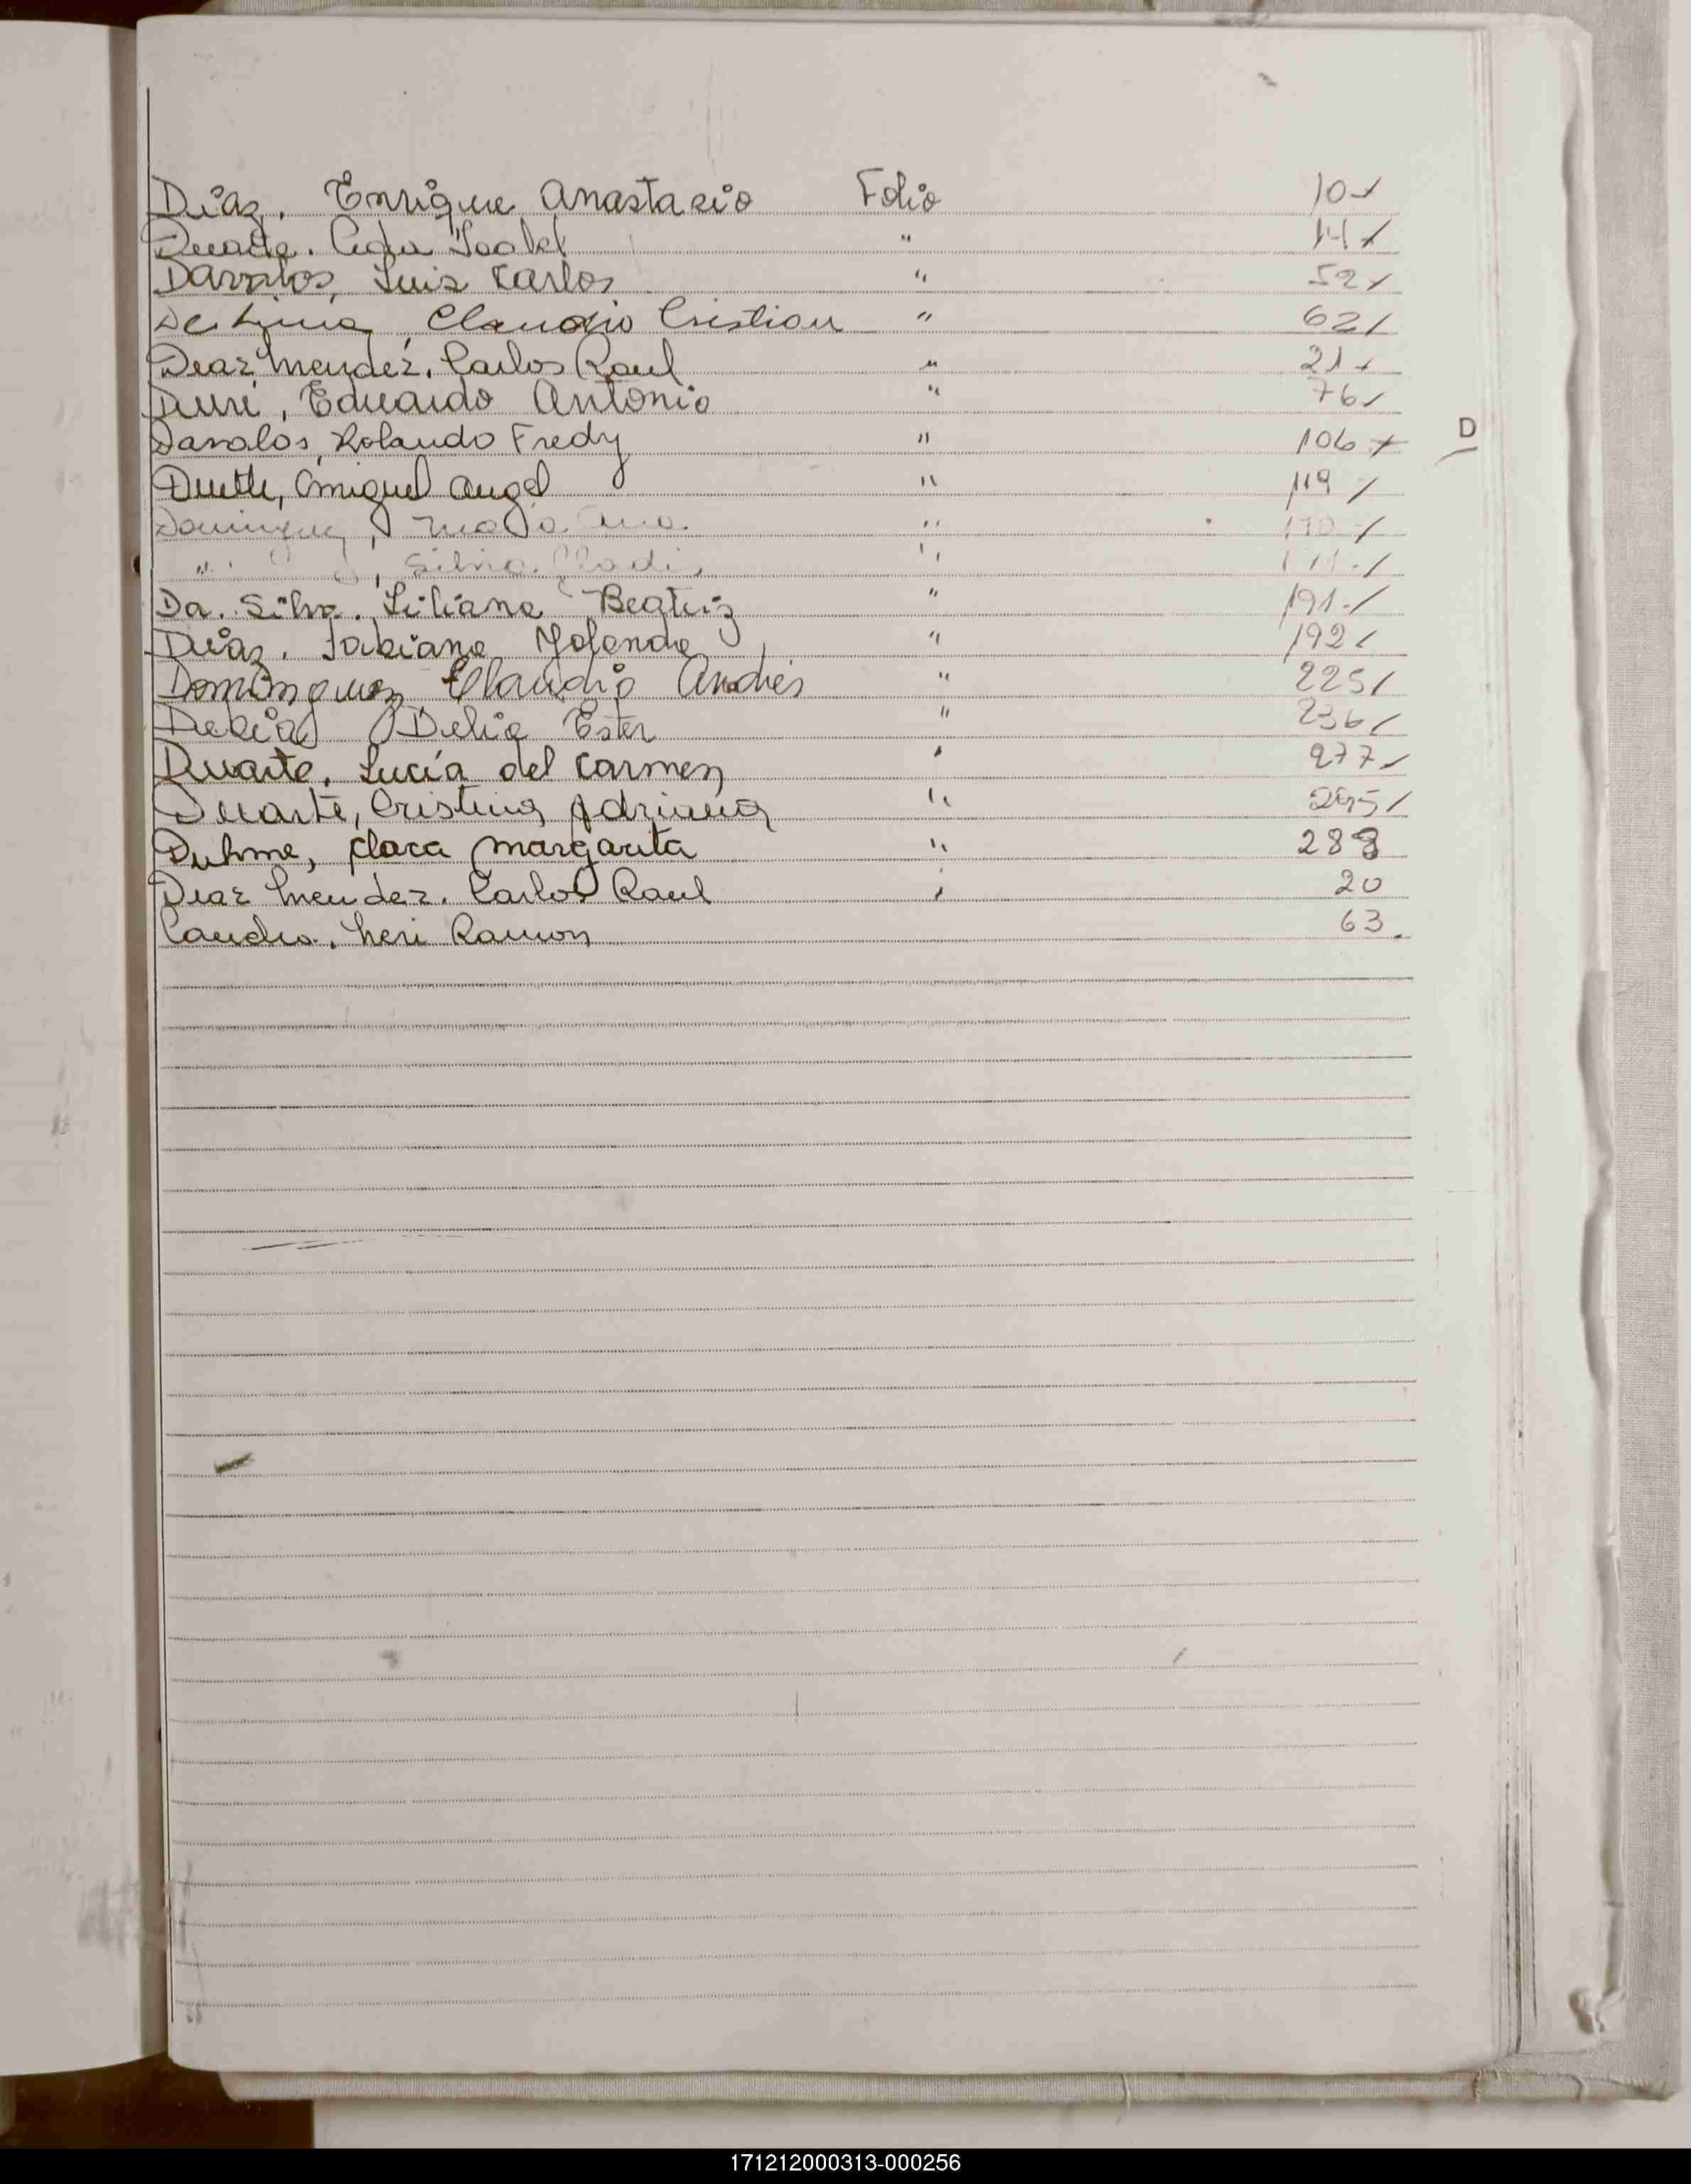 Diaz, Enrique Anastacio Folio 10
Duarte. Isabel " 14
Davalos, Luis Carlos " 52
De Lima, Claudio Cristian " 62
Diaz Mendez. Carlos Raul " 21
Duré, Eduardo Antonio " 76
Davalos, Rolando Fredy " 106
D
Duette, Miguel Angel " 119
Dominguez, Ana. " 170
" , Silvia "
Da. Silva. Liliana Beatriz " 191
Diaz. Fabiana Yolanda " 192
Dominguez Claudio Andrés " 225
Delia Ester " 236
Duarte. Lucía del Carmen " 277
Duarte, Cristina Adriana "
Duhme, Clara Margarita " 288
Diaz Mendez. Carlos Raul " 20
Neri Ramon 63.
171212000313-000256